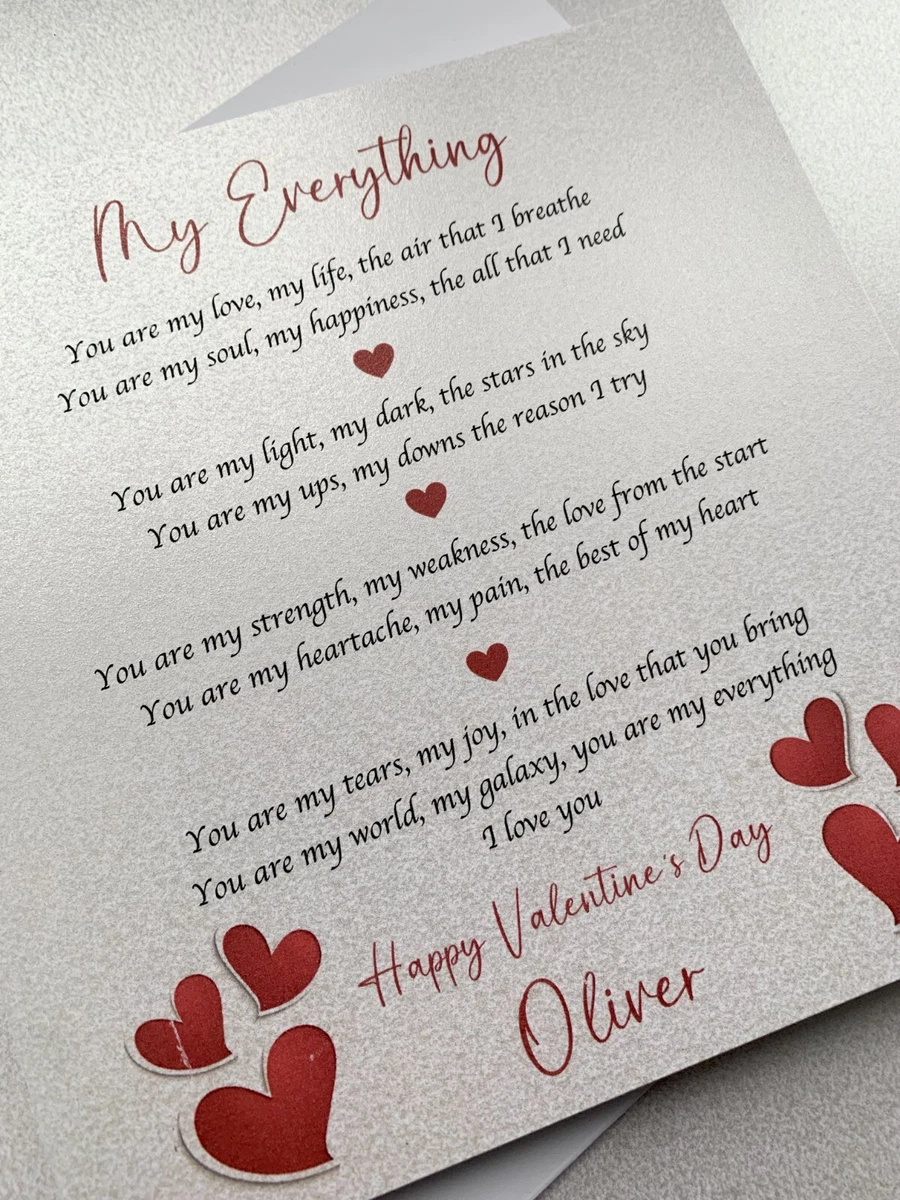 My Everything
You are my love, my life, the air that I breathe
You are my soul, my happiness, the all that I need
You are my light, my dark, the stars in the sky
You are my ups, my downs the reason I try
You are my strength, my weakness, the love from the start
You are my heartache, my pain, the best of my heart
You are my tears, my joy, in the love that you bring
You are my world, my galaxy, you are my everything
I love you
Happy Valentine's Day
Oliver